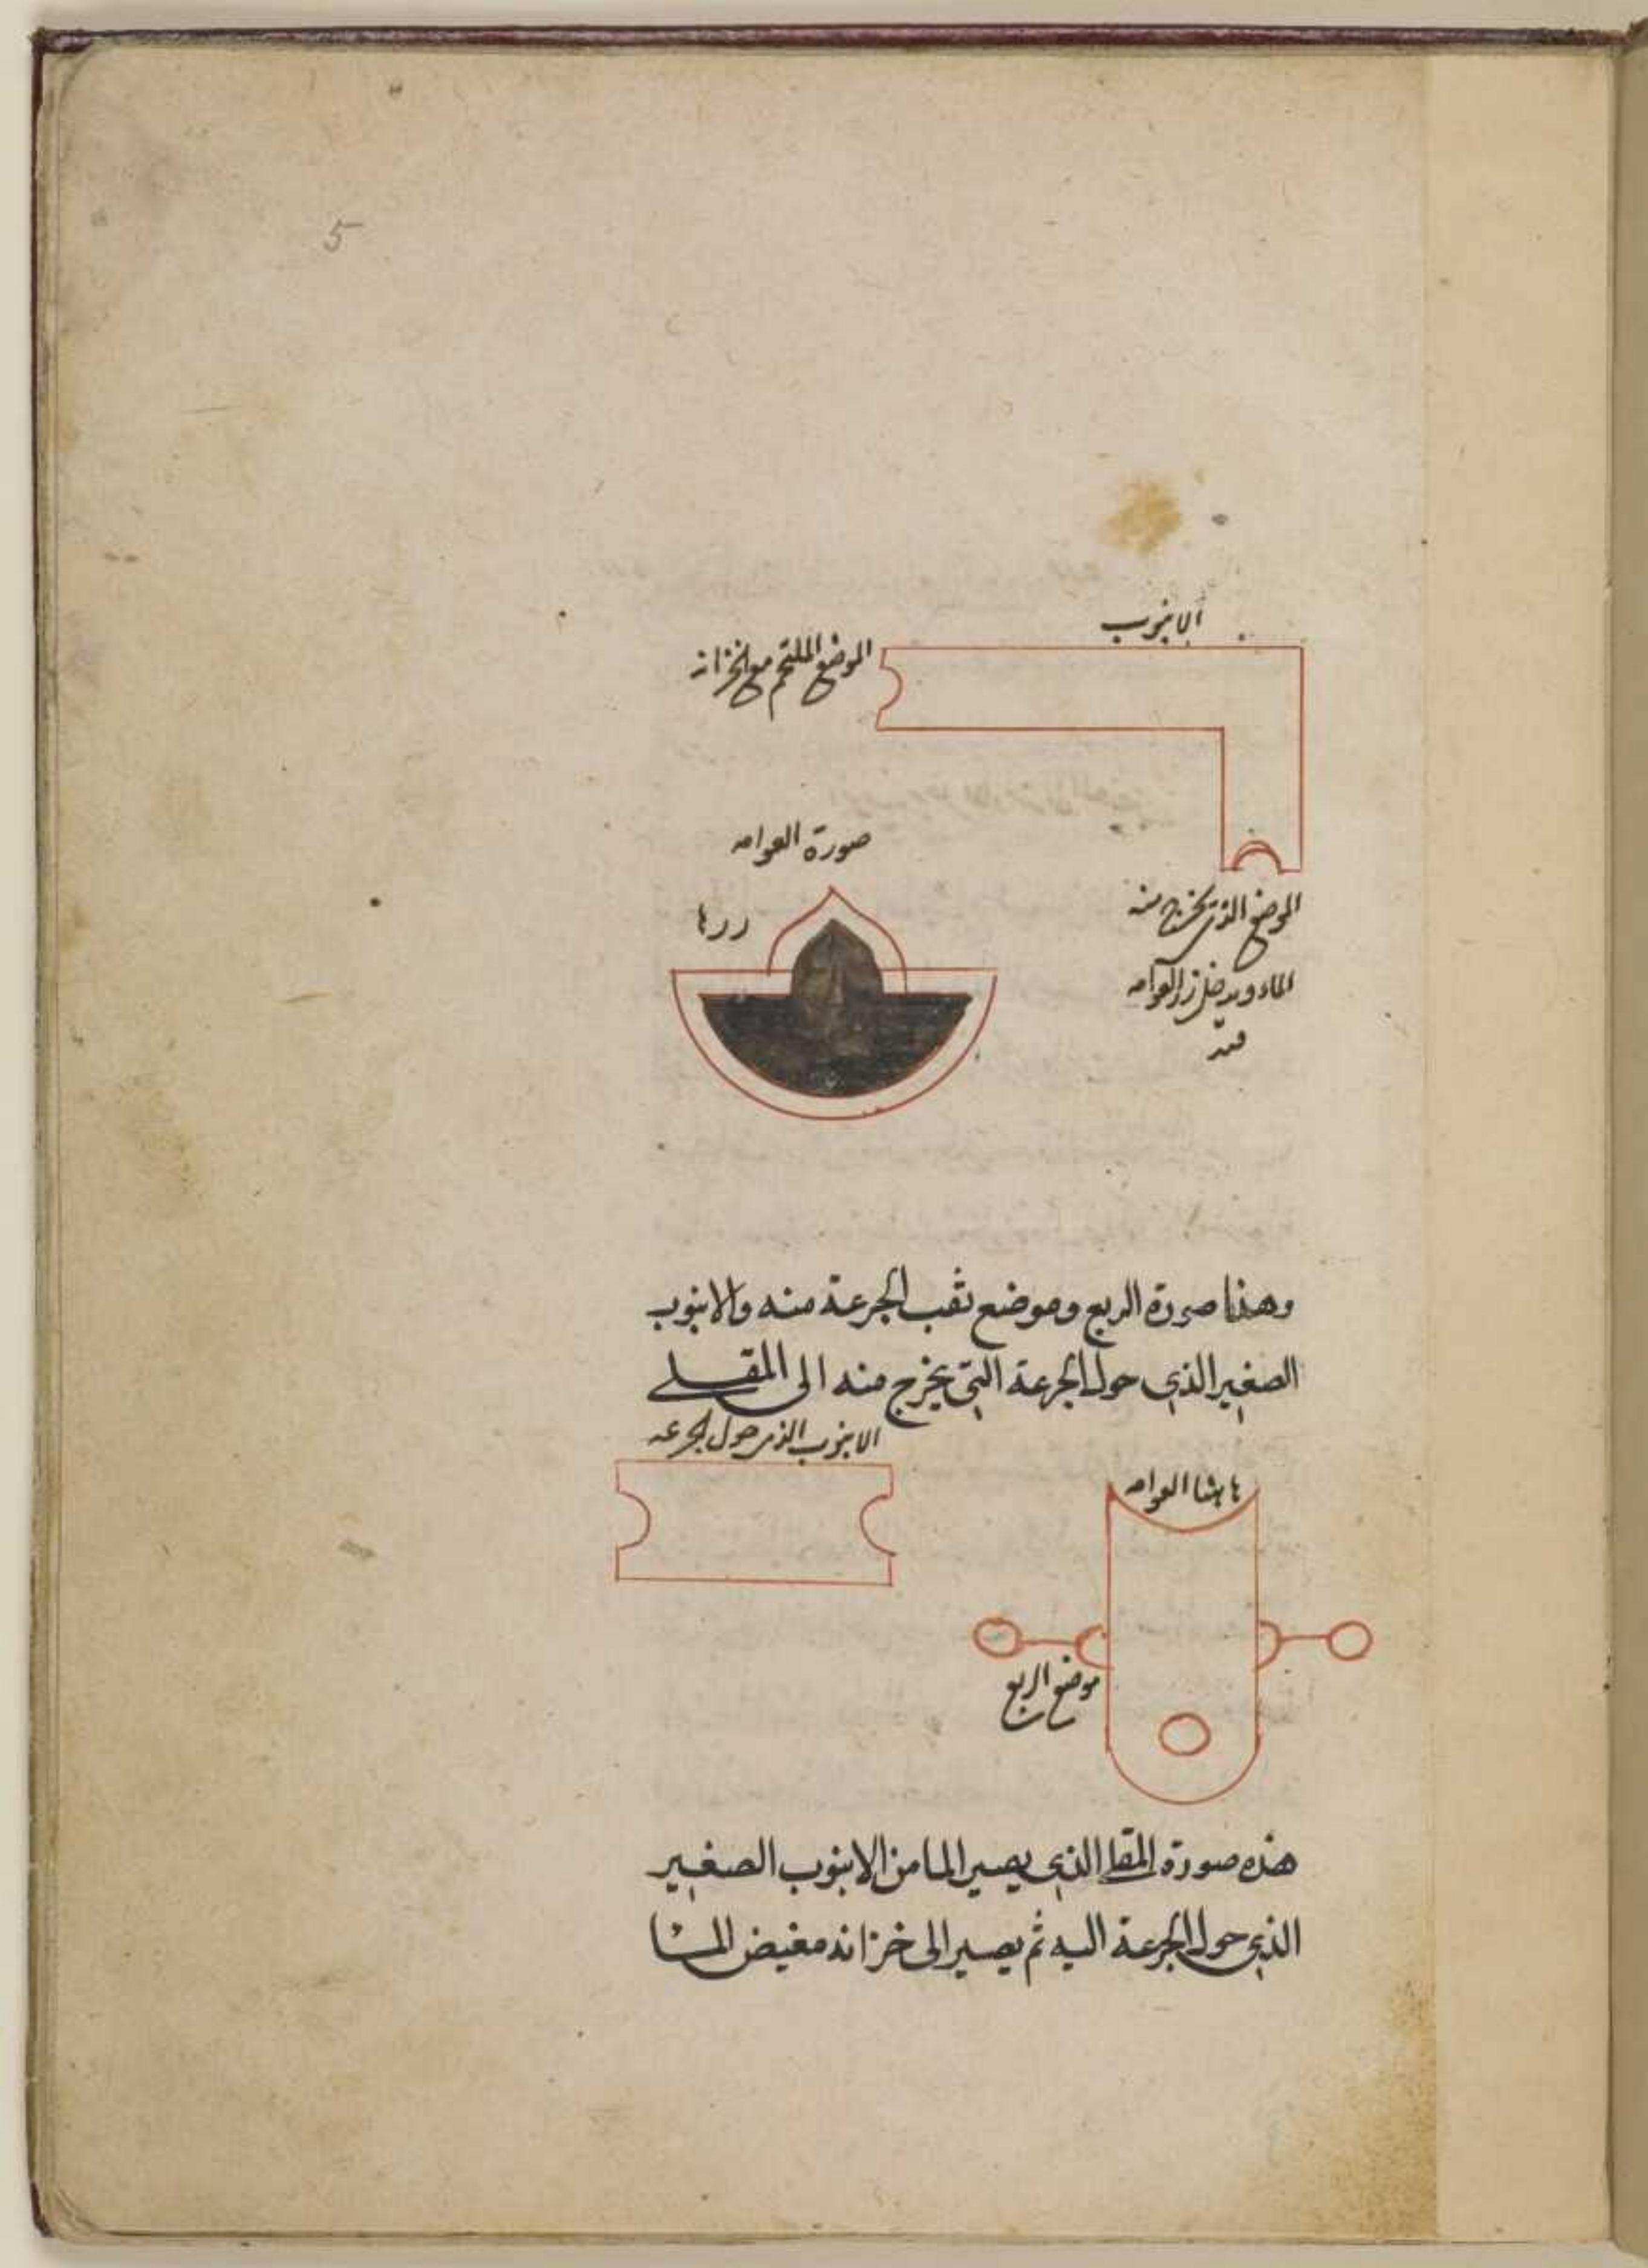 5
الانبوب
الموضع الملتحم مع الخزانة
صورة العوامه
زرها
الموضع الذي يخرج منه
الماء ويدخل زر العوامه
فيه
وهذا صورة الربع وموضع ثقب الجزعة منه والانبوب
الصغير الذي حول الجزعة التي يخرج منه الى المقلب
الانبوب الذي حول الجزعه
العوامه
موضع الربع
هذه صورة المقلب الذي يصير الما من الانبوب الصغير
الذي حول الجزعة اليه ثم يصير الى خزانه مغيض الما